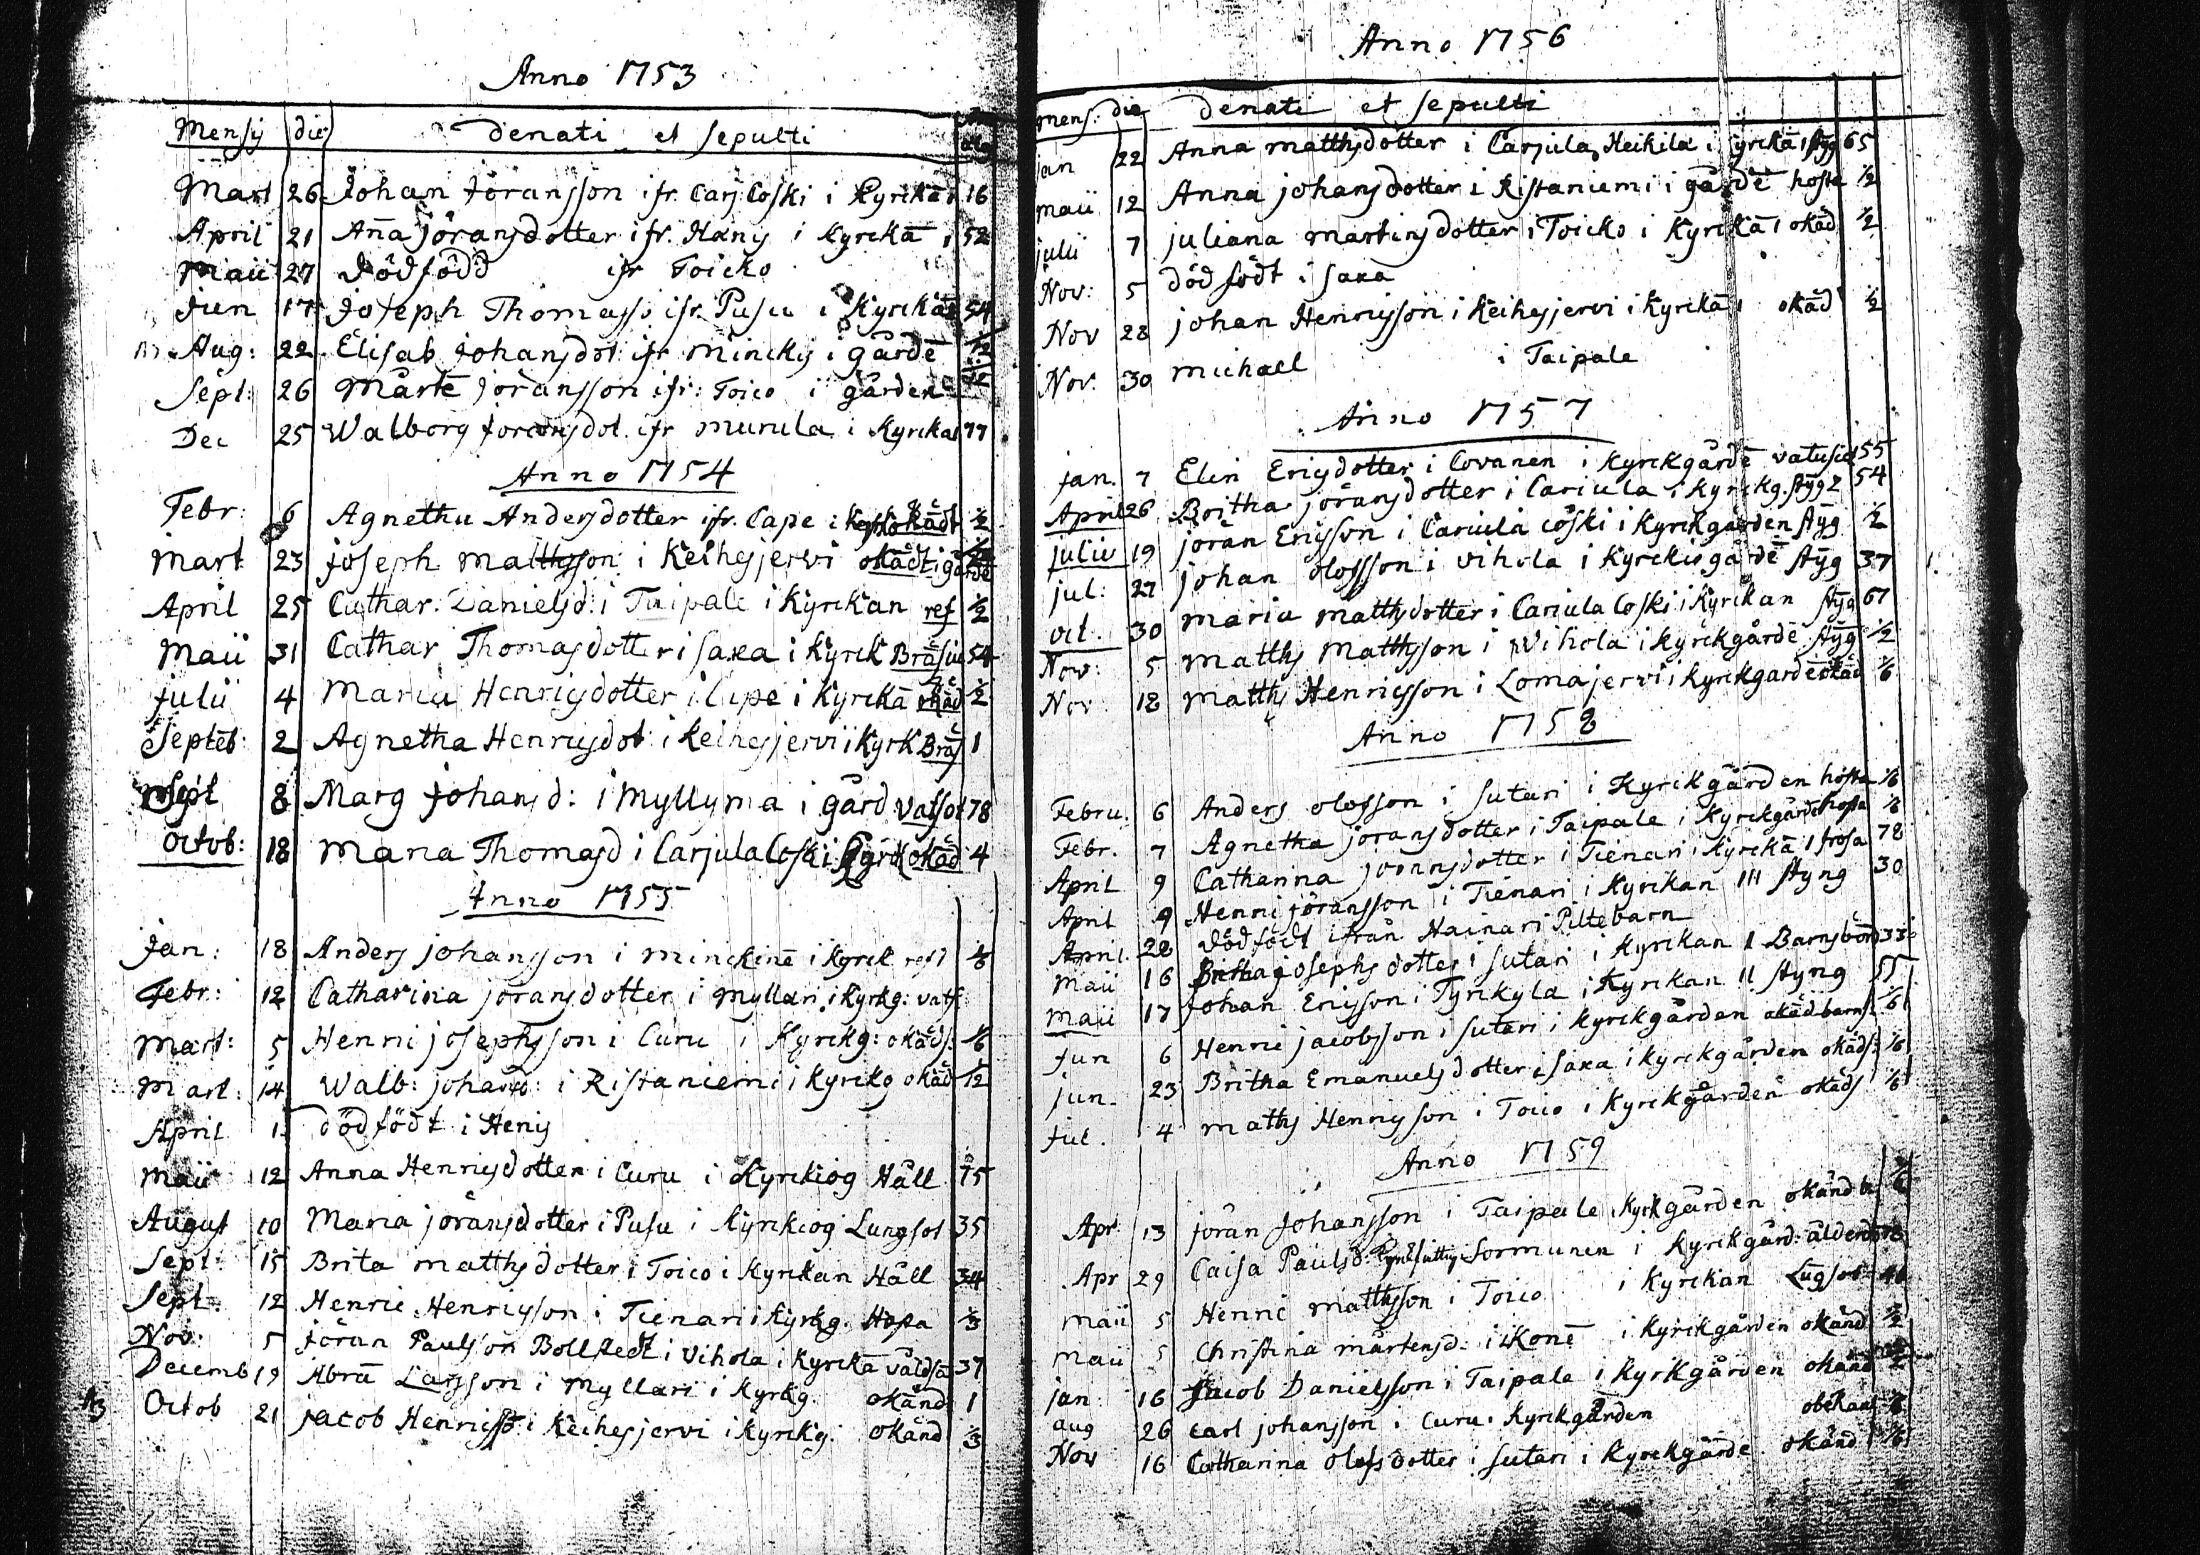 Anno 1753
Mensij die denati et sepulti
Mart 26 Johan Jöransson ifr. Carj. Coski i Kyrkā 16
April 21 Aña jöransdotter ifr. Hanis i Kyrkā 1 52
Maii 27 Dödfödd ifr Toicko
Jun 17 Joseph Thomass: ifr. Pusu i Kyrkā 54
Aug: 22 Elisab Johansdot: ifr Minckis i gårdē
Sept: 26 Mårtē jöransson ifr: Toico i gården
Dec 25 Walborg joransdot. ifr Murula i Kyrkā 77
Anno 1754
Febr: 6 Agnetha Andersdotter ifr. Cape i okädt ½
Mart 23 Joseph Mattsson i Keihesjervi okädt i gårdē
April 25 Cathar. Danielsd: i Taipale i Kyrkan ref ½
Maii 31 Cathar Thomasdotter i saxa i Kyrk Bråsiu 54
Julii 4 Maria Henrigsdotter i Cape i Kyrkā okäd ½
Septēb: 2 Agnetha Henrigsdot: i Keihesjervi i Kyrk Brås 1
Sept 8 Marg Johansd: i Myllyma i gård Vatsot 78
Octob: 18 Maria Thomasd i Carjula Coski i Kyrk okäd 4
Anno 1755
Jan: 18 Anders johansson i minckinē i Kyrk. ref 1 ⅙
Febr: 12 Catharina joransdotter i Myllari i Kyrkg: vatf:
Mart: 5 Henric josephsson i Curu i Kyrkg: okäds: ⅙
Mart: 14 Walb: johansd: i Ristaniemi i Kyrkg okäd ½
April 1 dödfödt i Henis
Maii 12 Anna Henrigsdotter i Curu i Kyrkiog Håll 75
August 10 Maria jöransdotter i Pusu i Kyrkiog Lungsot 35
Sept: 15 Brita matthsdotter i Toico i Kyrkan Håll 34
Sept: 12 Henric Henrigsson i Tienari i Kyrkg. Hosta ⅓
Nov: 5 Jöran Paulsson Bollstedt i Vihola i Kyrkā våldsā 37
Decemb 19 Abrā Larsson i Myllari i Kyrkg. okänd 1
Octob 21 jacob Henricss: i Keihesjervi i Kyrkg. okänd ⅓
Anno 1756
mens: die denati et sepulti
jan 22 Anna matthsdotter i Carjula Heikila i Kyrkā 1 styg 65
maii 12 Anna johansdotter i Ristaniemi i gårdē hosta ½
julii 7 juliana martinsdotter i Toicko i Kyrkā 1 okäd ½
Nov: 5 dödfödt i saxa
Nov 28 johan Henrigsson i Keihesjervi i Kyrkā 1 okäd ½
Nov. 30 michael i Taipale
Anno 1757
jan. 7 Elin Erigsdotter i Covanen i Kyrkgårdē vatusiu 55
April 26 Britha jöransdotter i Cariula i Kyrkg. styg 2 54
julii 19 jöran Ericsson i Cariula coski i Kyrkgården styg ½
jul: 27 johan olofsson i vihola i Kyrkiogårdē styg 37
oct. 30 maria matthsdotter i Cariula Coski i Kyrkan styg 67
Nov: 5 matths Matthsson i Wihola i kyrkgårdē styg ½
Nov 18 matths Henricsson i Lomajervi i Kyrkgardē okäd ⅙
Anno 1758
Febru. 6 Anders olofsson i Sutari i Kyrckgården hosta ⅙
Febr. 7 Agnetha joransdotter i Taipale i Kyrckgårdē hosta ⅙
April 9 Catharina joransdotter i Tienari i Kyrkā 1 frosa 78
April 9 Henric jöransson i Tienari i Kyrkan III styng 30
April 28 Dödfödt ifrån Nainari Piltebarn
Maii 16 Britha josephsdotter i sutari i Kyrkan 1 Barnsbörd 33
Maii 17 Johan Ericsson i Tyrkyla i Kyrkan II styng 55
Jun 6 Henric jacobsson i sutari i Kyrkgården okäd barns: ⅙
jun. 23 Britha Emanuelsdotter i saxa i kyrckgården okäds: ⅙
Jul. 4 maths Henricsson i Toico i Kyrckgården okäds ⅙
Anno 1759
Apr 13 jöran Johansson i Taipale Kyrkgården okänd
Apr 29 Caisa Paulsd: i Sormunen i Kyrckgård: ålderd
maii 5 Henric matthsson i Toico i Kyrckan Lūgsot 46
maii 5 Christina mårtensd: i Ikonē i Kyrckgården okänd ½
jan 16 Jacob Danielsson i Taipale i Kyrkgården okänd
aug 26 carl johansson i Curu i Kyrckgården obekant ⅙
Nov 16 Catharina olofsdotter i Sutari i Kyrckgårdē okänd ⅙